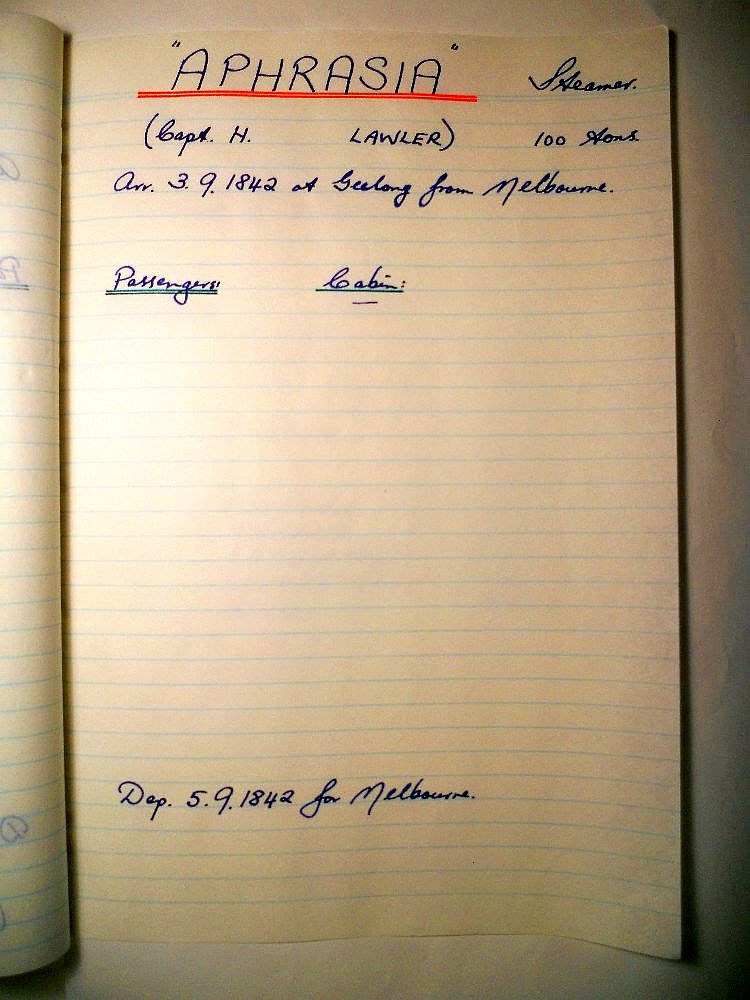 "APHRASIA" Steamer.
(Capt. H. LAWLER) 100 tons.
Arr. 3.9.1842 at Geelong from Melbourne.
Passengers: Cabin:
—
Dep. 5.9.1842 for Melbourne.